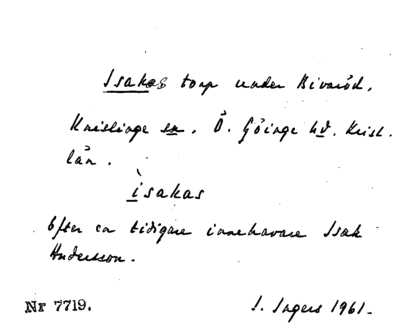 Isakas torp under Bivaröd,
Knislinge sn. Ö. Göinge hd. Krist.
län.
ìsakas
Efter en tidigare innehavare Isak
Andersson.
Nr 7719. I. Ingers 1961.